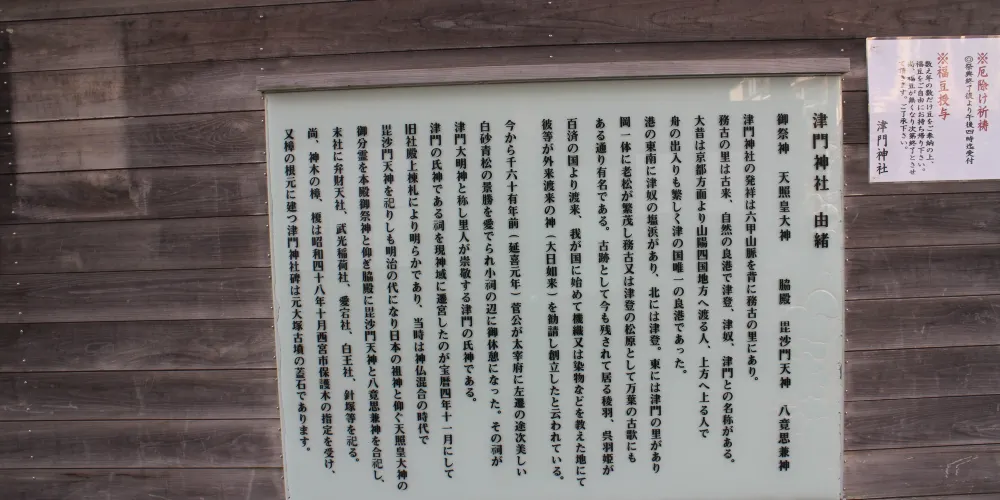 津門神社 由緒
御祭神 天照皇大神 脇殿 毘沙門天神 八意思兼神
津門神社の発祥は六甲山脈を背に務古の里にあり。
務古の里は古来、自然の良港で津登、津奴、津門との名称がある。
大昔は京都方面より山陽四国地方へ渡る人、上方へ上る人で
舟の出入りも繁しく津の国唯一の良港であった。
港の東南に津奴の塩浜があり、北には津登。東には津門の里があり
岡一体に老松が繁茂し務古又は津登の松原として万葉の古歌にも
ある通り有名である。古跡として今も残されて居る稜羽、呉羽姫が
百済の国より渡来、我が国に始めて機織又は染物などを教えた地にて
彼等が外来渡来の神(大日如来)を勧請し創立したと云われている。
今から千六十有年前(延喜元年)菅公が太宰府に左遷の途次美しい
白砂青松の景勝を愛でられ小祠の辺に御休憩になった。その祠が
津門大明神と称し里人が崇敬する津門の氏神である。
津門の氏神である祠を現神域に遷宮したのが宝暦四年十一月にして
旧社殿上棟札により明らかであり、当時は神仏混合の時代で
毘沙門天神を祀りしも明治の代になり日本の祖神と仰ぐ天照皇大神の
御分霊を本殿御祭神と仰ぎ脇殿に毘沙門天神と八意思兼神を合祀し、
末社に弁財天社、武光稲荷社、愛宕社、白王社、針塚等を祀る。
尚、神木の樟、榎は昭和四十八年十月西宮市保護木の指定を受け、
又樟の根元に建つ津門神社碑は元大塚古墳の蓋石であります。
※厄除け祈祷
◎祭典終了後より午後四時迄受付
※福豆授与
数え年の数だけ豆をご奉納の上、
福豆をご自由にお持ち帰り下さい。
尚、福豆が無くなり次第終了とさせ
て頂きます。ご了承下さい。
津門神社